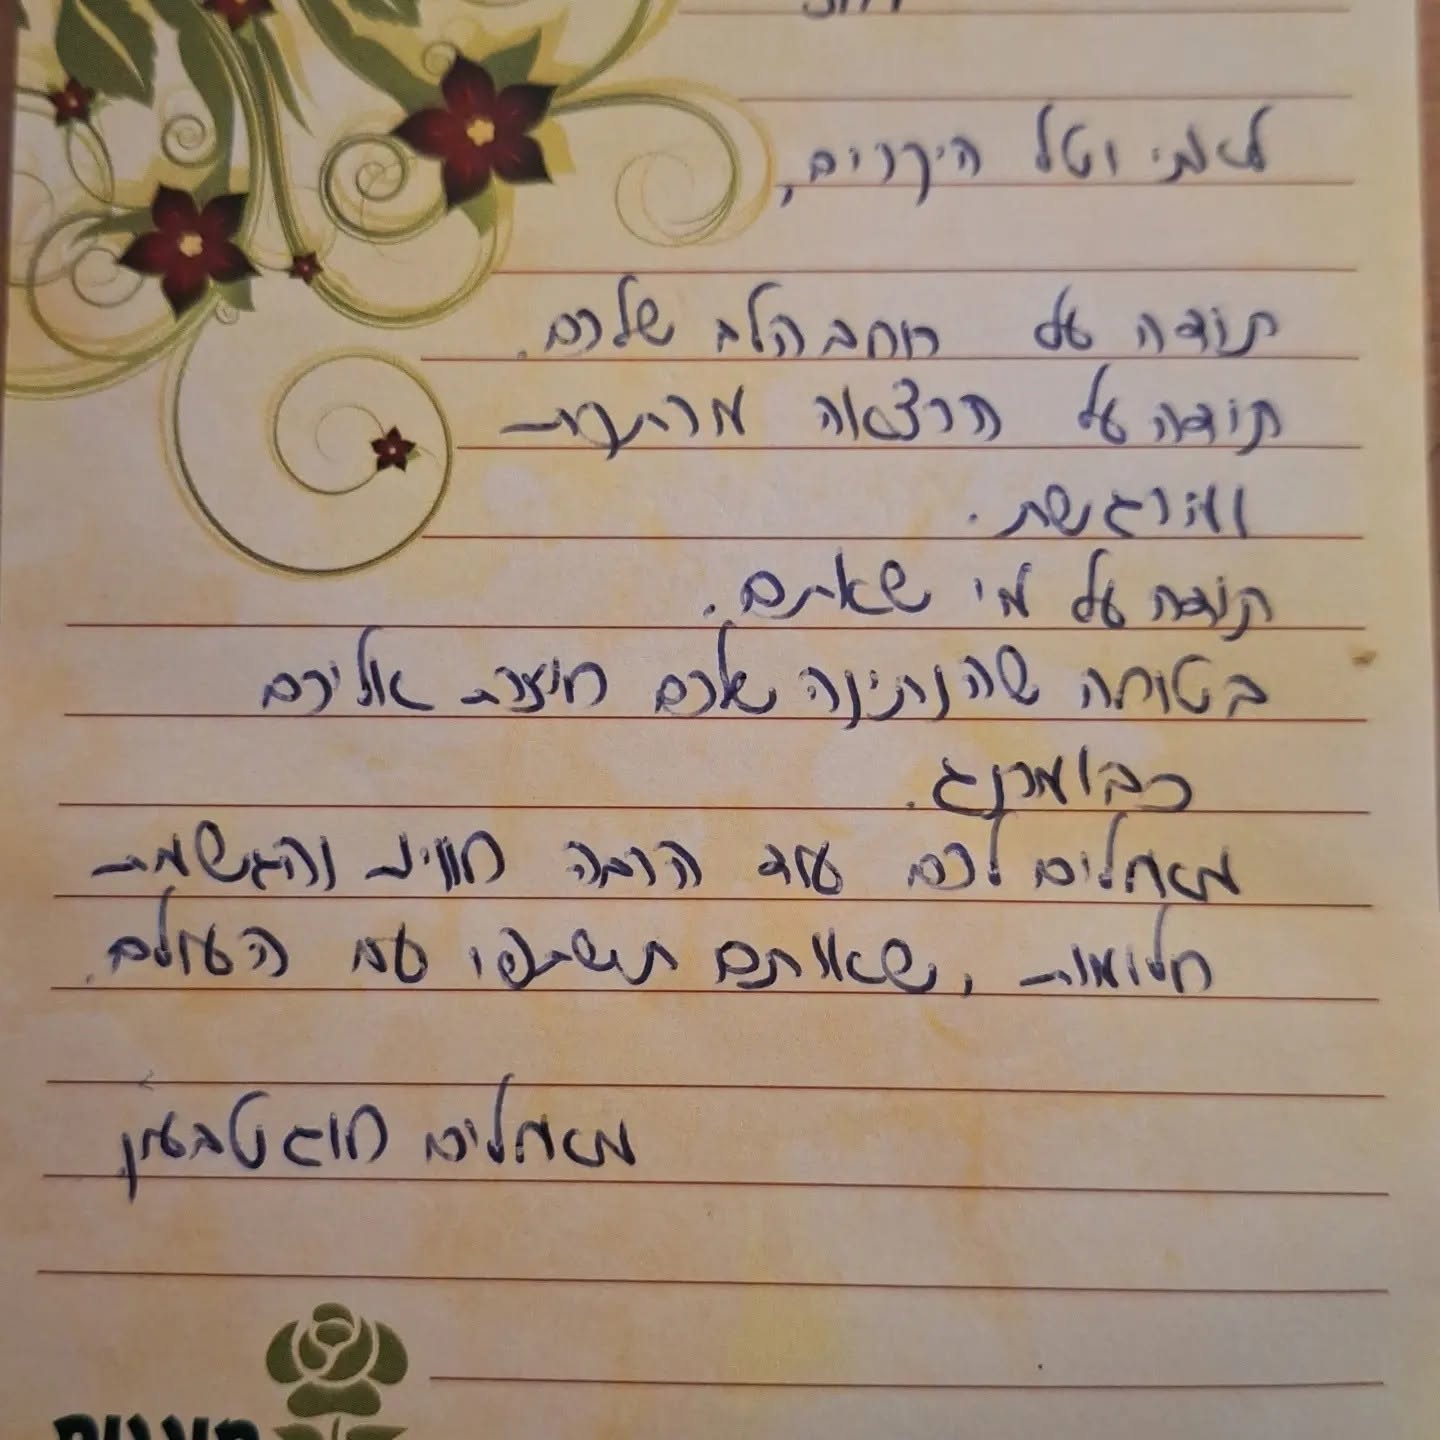 לאמי וטל היקרים,
תודה על רוחב הלב שלכם.
תודה על הרצאה מרתקת
ומרגשת.
תודה על מי שאתם.
בטוחה שהנתינה שלכם חוזרת אליכם
כבומרנג.
מאחלים לכם עוד הרבה חוויות והגשמת
חלומות, שאותם תשתפו עם העולם.
מאחלים חוג טבעון